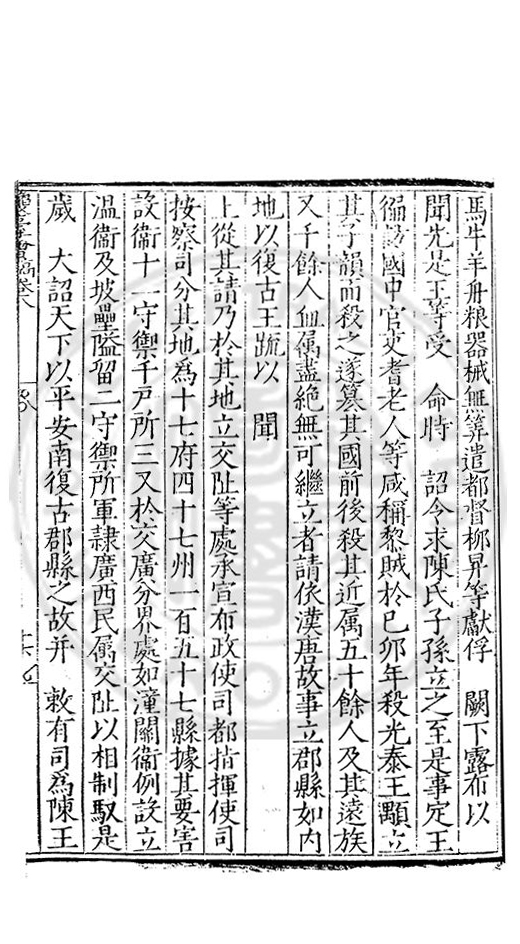 馬牛羊舟粮器械無筭遣都督栁昇等獻俘　闕下露布以
聞先是王等受　命時　詔令求陳氏子孫立之至是事定王
徧訪國中官吏耆老人等咸稱黎賊於己卯年殺光泰王顒立
其子䪺而殺之遂篡其國前後殺其近属五十餘人及其遠族
又千餘人血属盡絶無可繼立者請依漢唐故事立郡縣如内
地以復古王䟽以　聞
上從其請乃於其地立交阯等處承宣布政使司都指揮使司
按察司分其地為十七府四十七州一百五十七縣據其要害
設衛十一守禦千戸所三又於交廣分界處如潼關衛例設立
温衛及坡壘隘留二守禦所軍隷廣西民属交阯以相制馭是
歲　大詔天下以平安南復古郡縣之故并　敕有司為陳王
卷八